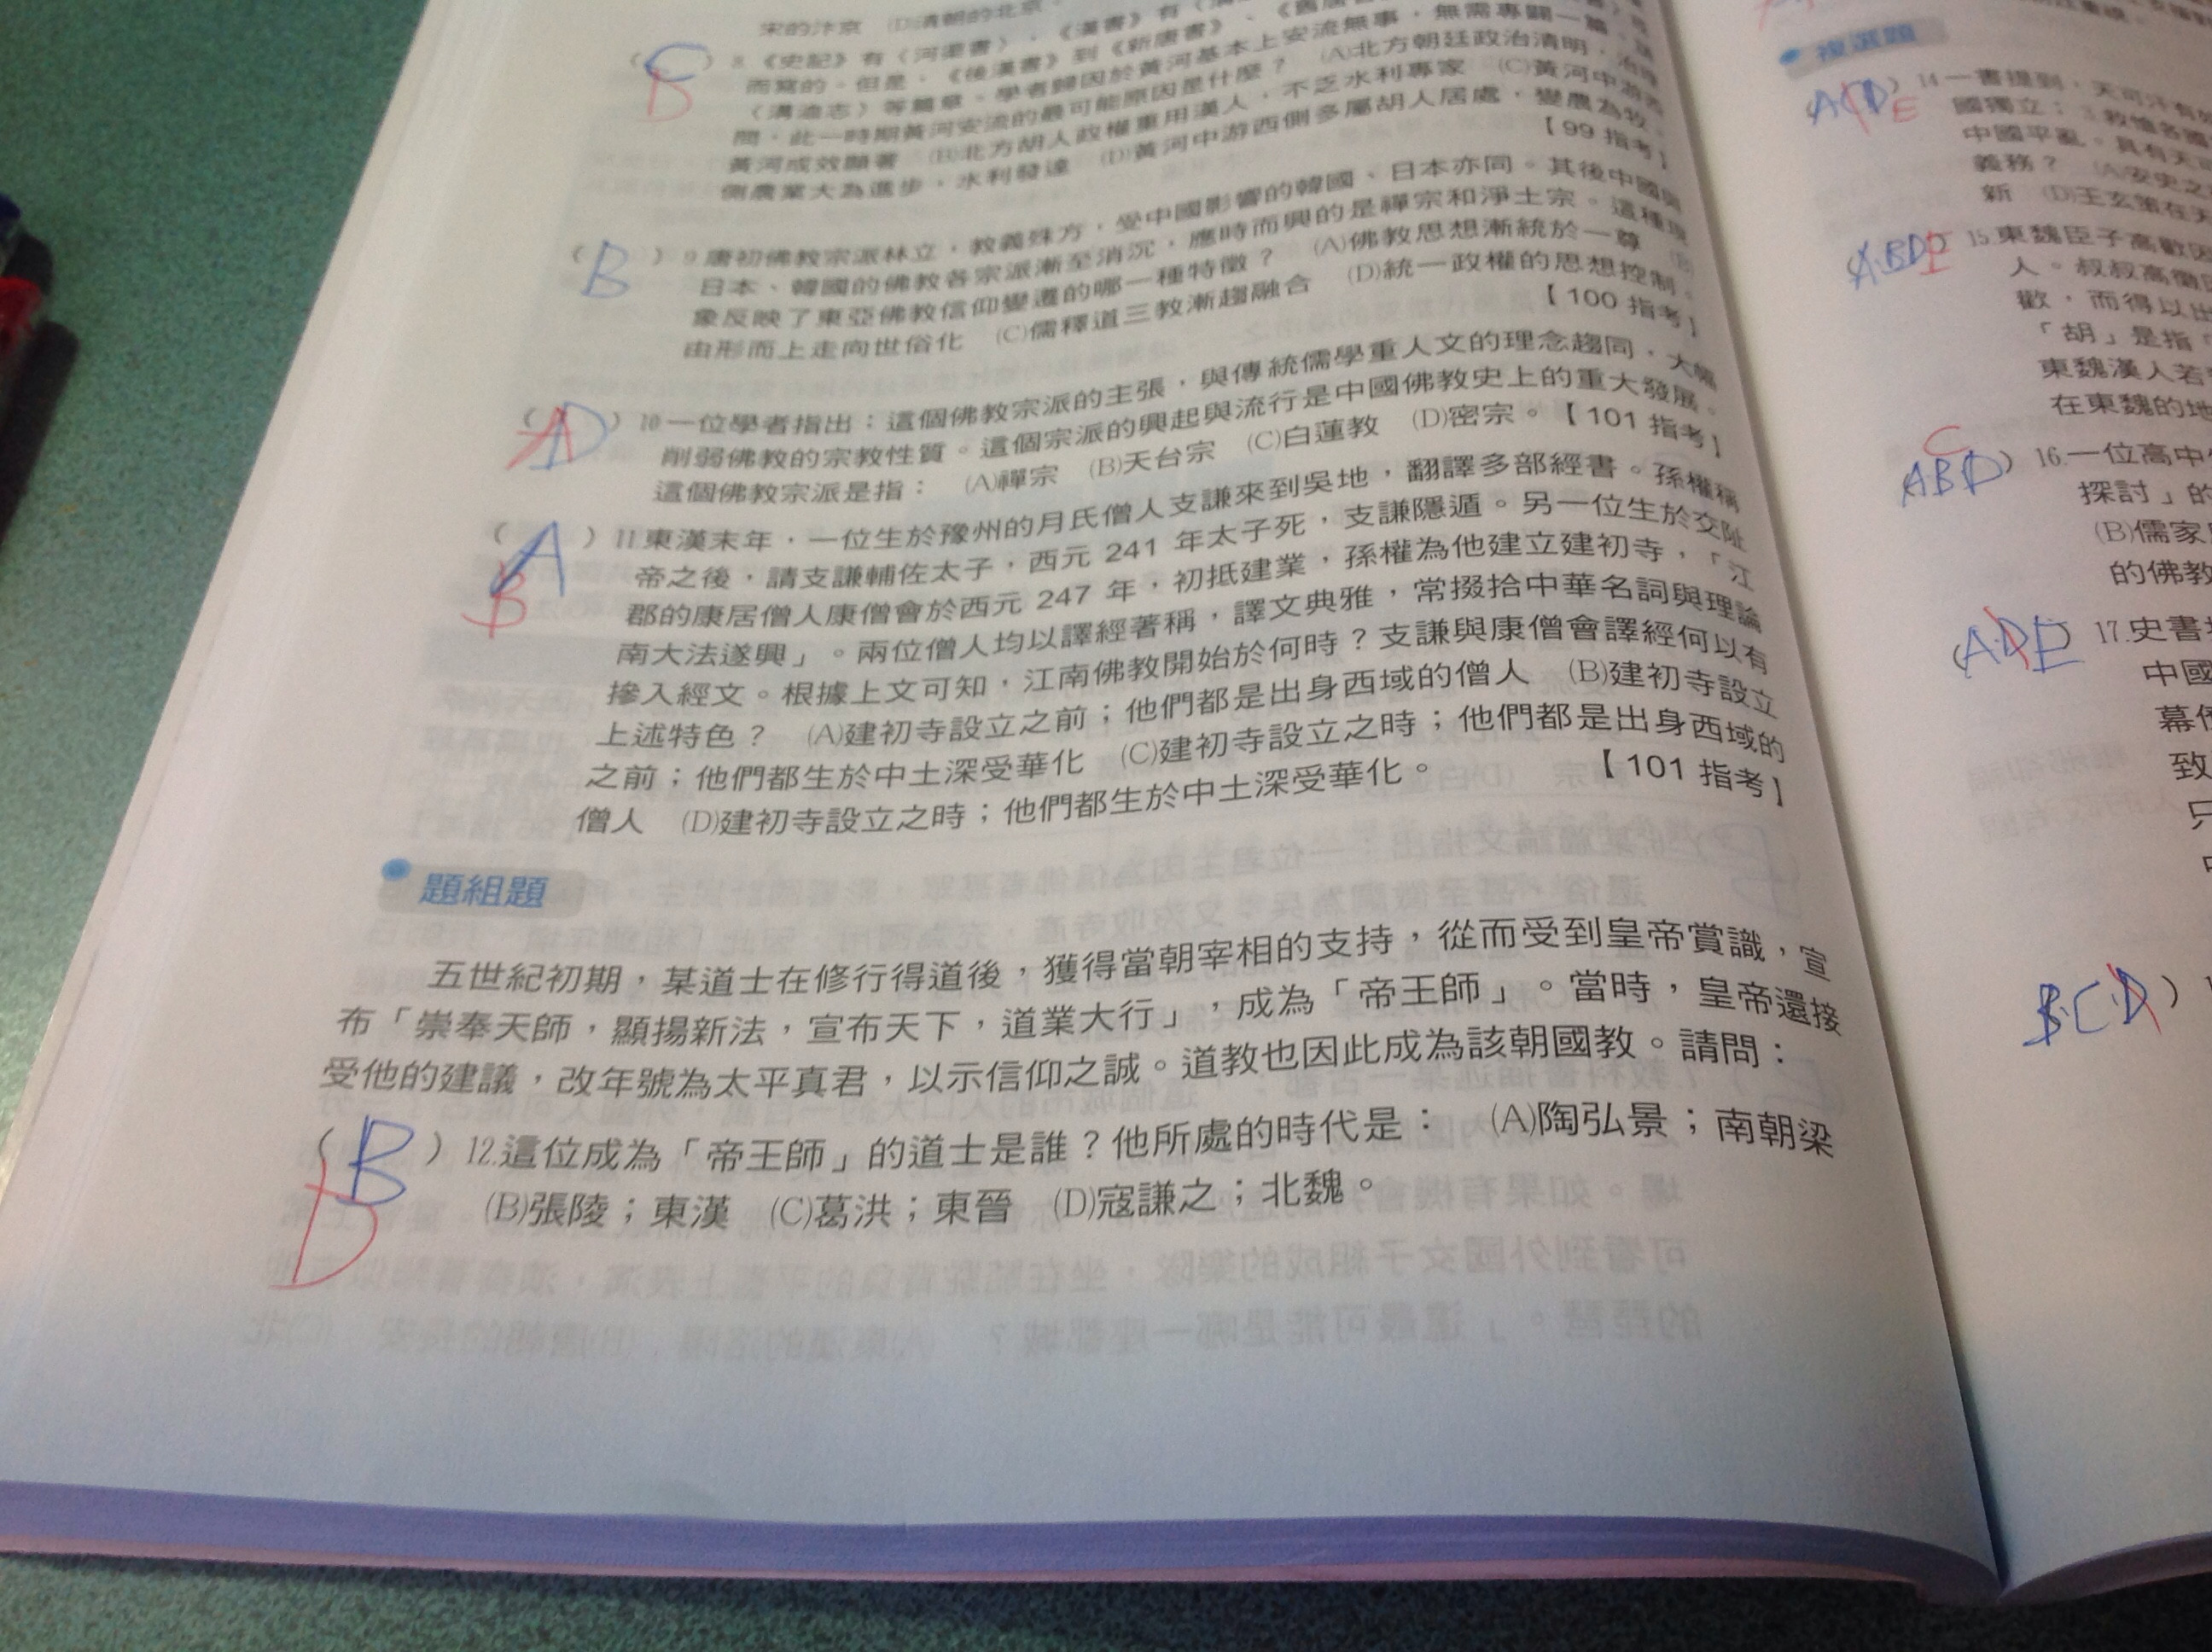 宋的汴京 (D)清朝的北京。
(C) 8.《史記》有〈河渠書〉、《漢書》有
D
而寫的。但是,《後漢書》到《新唐書》、
〈溝洫志〉等篇章。學者歸因於黃河基本上安流無事,無需專闢一篇。請
問,此一時期黃河安流的最可能原因是什麼? (A)北方朝廷政治清明,治理
黃河成效顯著 (B)北方胡人政權重用漢人,不乏水利專家 (C)黃河中游西
側農業大為進步,水利發達 (D)黃河中游西側多屬胡人居處,變農為牧。
【99 指考】
(B) 9.唐初佛教宗派林立,教義殊方,受中國影響的韓國、日本亦同。其後中國與
日本、韓國的佛教各宗派漸至消沉,應時而興的是禪宗和淨土宗。這種現
象反映了東亞佛教信仰變遷的哪一種特徵? (A)佛教思想漸統於一尊 (B)
由形而上走向世俗化 (C)儒釋道三教漸趨融合 (D)統一政權的思想控制。
【100 指考】
(AD) 10.一位學者指出:這個佛教宗派的主張,與傳統儒學重人文的理念趨同,大幅
削弱佛教的宗教性質。這個宗派的興起與流行是中國佛教史上的重大發展。
這個佛教宗派是指: (A)禪宗 (B)天台宗 (C)白蓮教 (D)密宗。【101 指考】
(A) 11.東漢末年,一位生於豫州的月氏僧人支謙來到吳地,翻譯多部經書。孫權稱
B
帝之後,請支謙輔佐太子,西元 241 年太子死,支謙隱遁。另一位生於交趾
郡的康居僧人康僧會於西元 247 年,初抵建業,孫權為他建立建初寺,「江
南大法遂興」。兩位僧人均以譯經著稱,譯文典雅,常掇拾中華名詞與理論
摻入經文。根據上文可知,江南佛教開始於何時?支謙與康僧會譯經何以有
上述特色? (A)建初寺設立之前;他們都是出身西域的僧人 (B)建初寺設立
之前;他們都生於中土深受華化 (C)建初寺設立之時;他們都是出身西域的
僧人 (D)建初寺設立之時;他們都生於中土深受華化。 【101 指考】
題組題
五世紀初期,某道士在修行得道後,獲得當朝宰相的支持,從而受到皇帝賞識,宣
布「崇奉天師,顯揚新法,宣布天下,道業大行」,成為「帝王師」。當時,皇帝還接
受他的建議,改年號為太平真君,以示信仰之誠。道教也因此成為該朝國教。請問:
(B) 12.這位成為「帝王師」的道士是誰?他所處的時代是: (A)陶弘景;南朝梁
D
(B)張陵;東漢 (C)葛洪;東晉 (D)寇謙之;北魏。
複選題
(ACD) 14.一書提到,天可汗有
E
國獨立;3.救恤各國
中國平亂。具有天
義務? (A)安史之
新 (D)王玄策在天
(ABD) 15.東魏臣子高歡因
E
人。叔叔高
歡,而得以出
「胡」是指「
東魏漢人若
在東魏的地
C
(ABD) 16.一位高中
探討」的
(B)儒家
的佛教
(ADE) 17.史書
中國
幕
致
只
BCD)